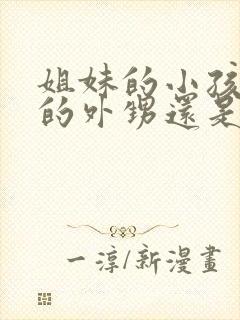 姐妹的小孩
的外甥還是
一淳/新漫畫